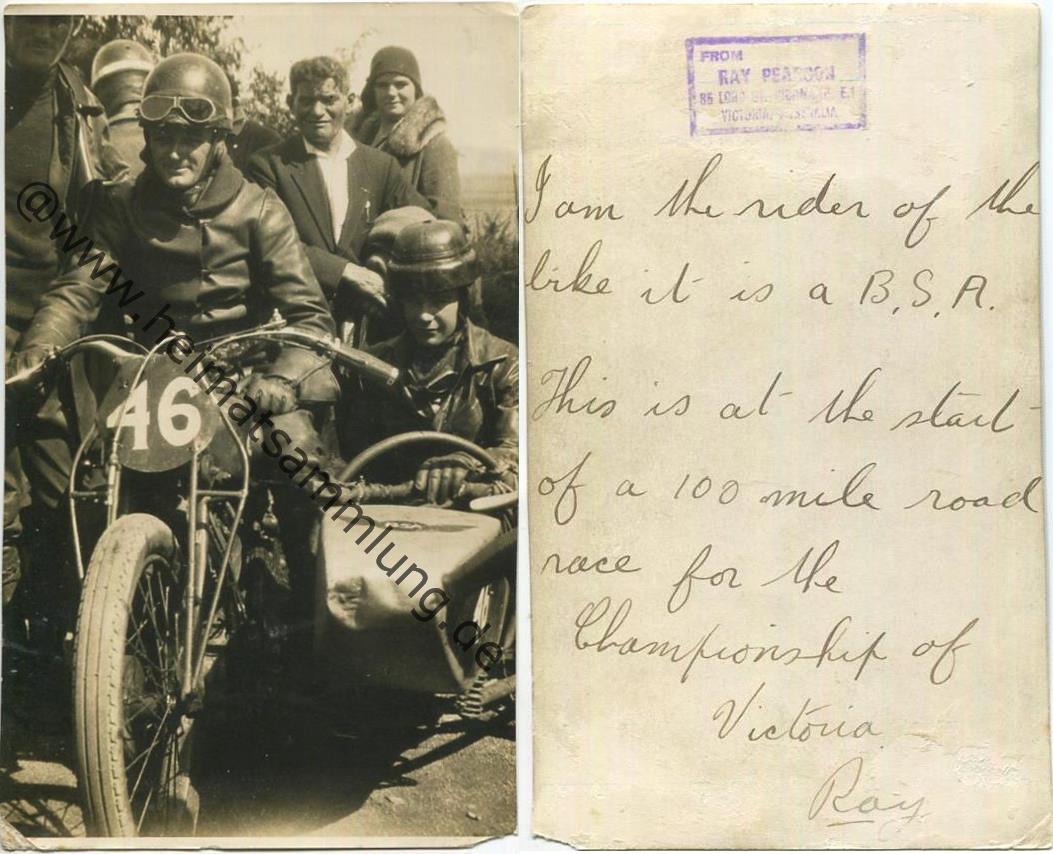 46
@www.heimatsammlung.de
FROM
RAY PEARSON
VICTORIA, AUSTRALIA
I am the rider of the
bike it is a B.S.A.
This is at the start
of a 100 mile road
race for the
Championship of
Victoria
Ray.